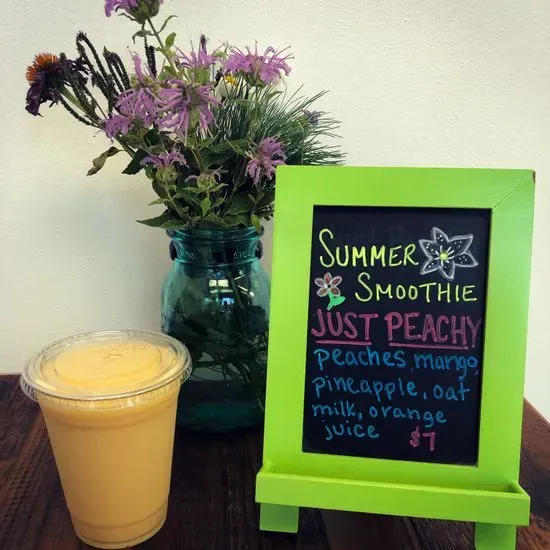 SUMMER
SMOOTHIE
JUST PEACHY
peaches, mango,
pineapple, oat
milk, orange
juice $7